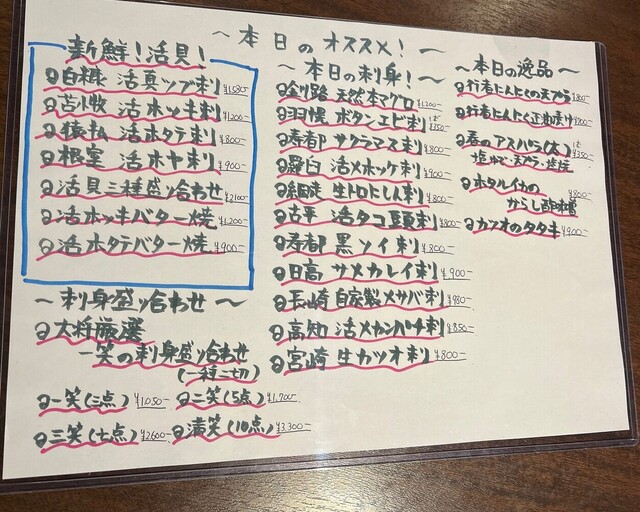 ~本日のオススメ!~
新鮮!活貝!
白糠 活真ツブ刺 ¥1,580-
苫小牧 活ホッキ刺 ¥1,200-
猿払 活ホタテ刺 ¥800-
根室 活ホヤ刺 ¥900-
活貝三種盛り合わせ ¥2,100-
活ホッキバター焼 ¥1,200-
活ホタテバター焼 ¥900-
~刺身盛り合わせ~
大将厳選
一笑の刺身盛り合わせ
(一種二切)
一笑(三点) ¥1,050- 二笑(5点) ¥1,700-
三笑(七点) ¥2,600- 満笑(10点) ¥3,300-
~本日の刺身!~
釧路 天然本マグロ ¥1,200-
羽幌 ボタンエビ刺 ¥350-
寿都 サクラマス刺 ¥800-
羅臼 活メホッケ刺 ¥900-
網走 生トロトロ〆刺 ¥800-
古平 活タコ頭刺 ¥800-
寿都 黒ソイ刺 ¥800-
日高 サメカレイ刺 ¥900-
長崎 自家製〆サバ刺 ¥980-
高知 活〆カンパチ刺 ¥850-
宮崎 生カツオ刺 ¥800-
~本日の逸品~
行者にんにくの天ぷら ¥800-
行者にんにく正油漬け
春のアスパラ(太) ¥350-
塩ゆで・天ぷら・塩焼
ホタルイカの ¥800-
からし酢味噌
カツオのタタキ ¥900-